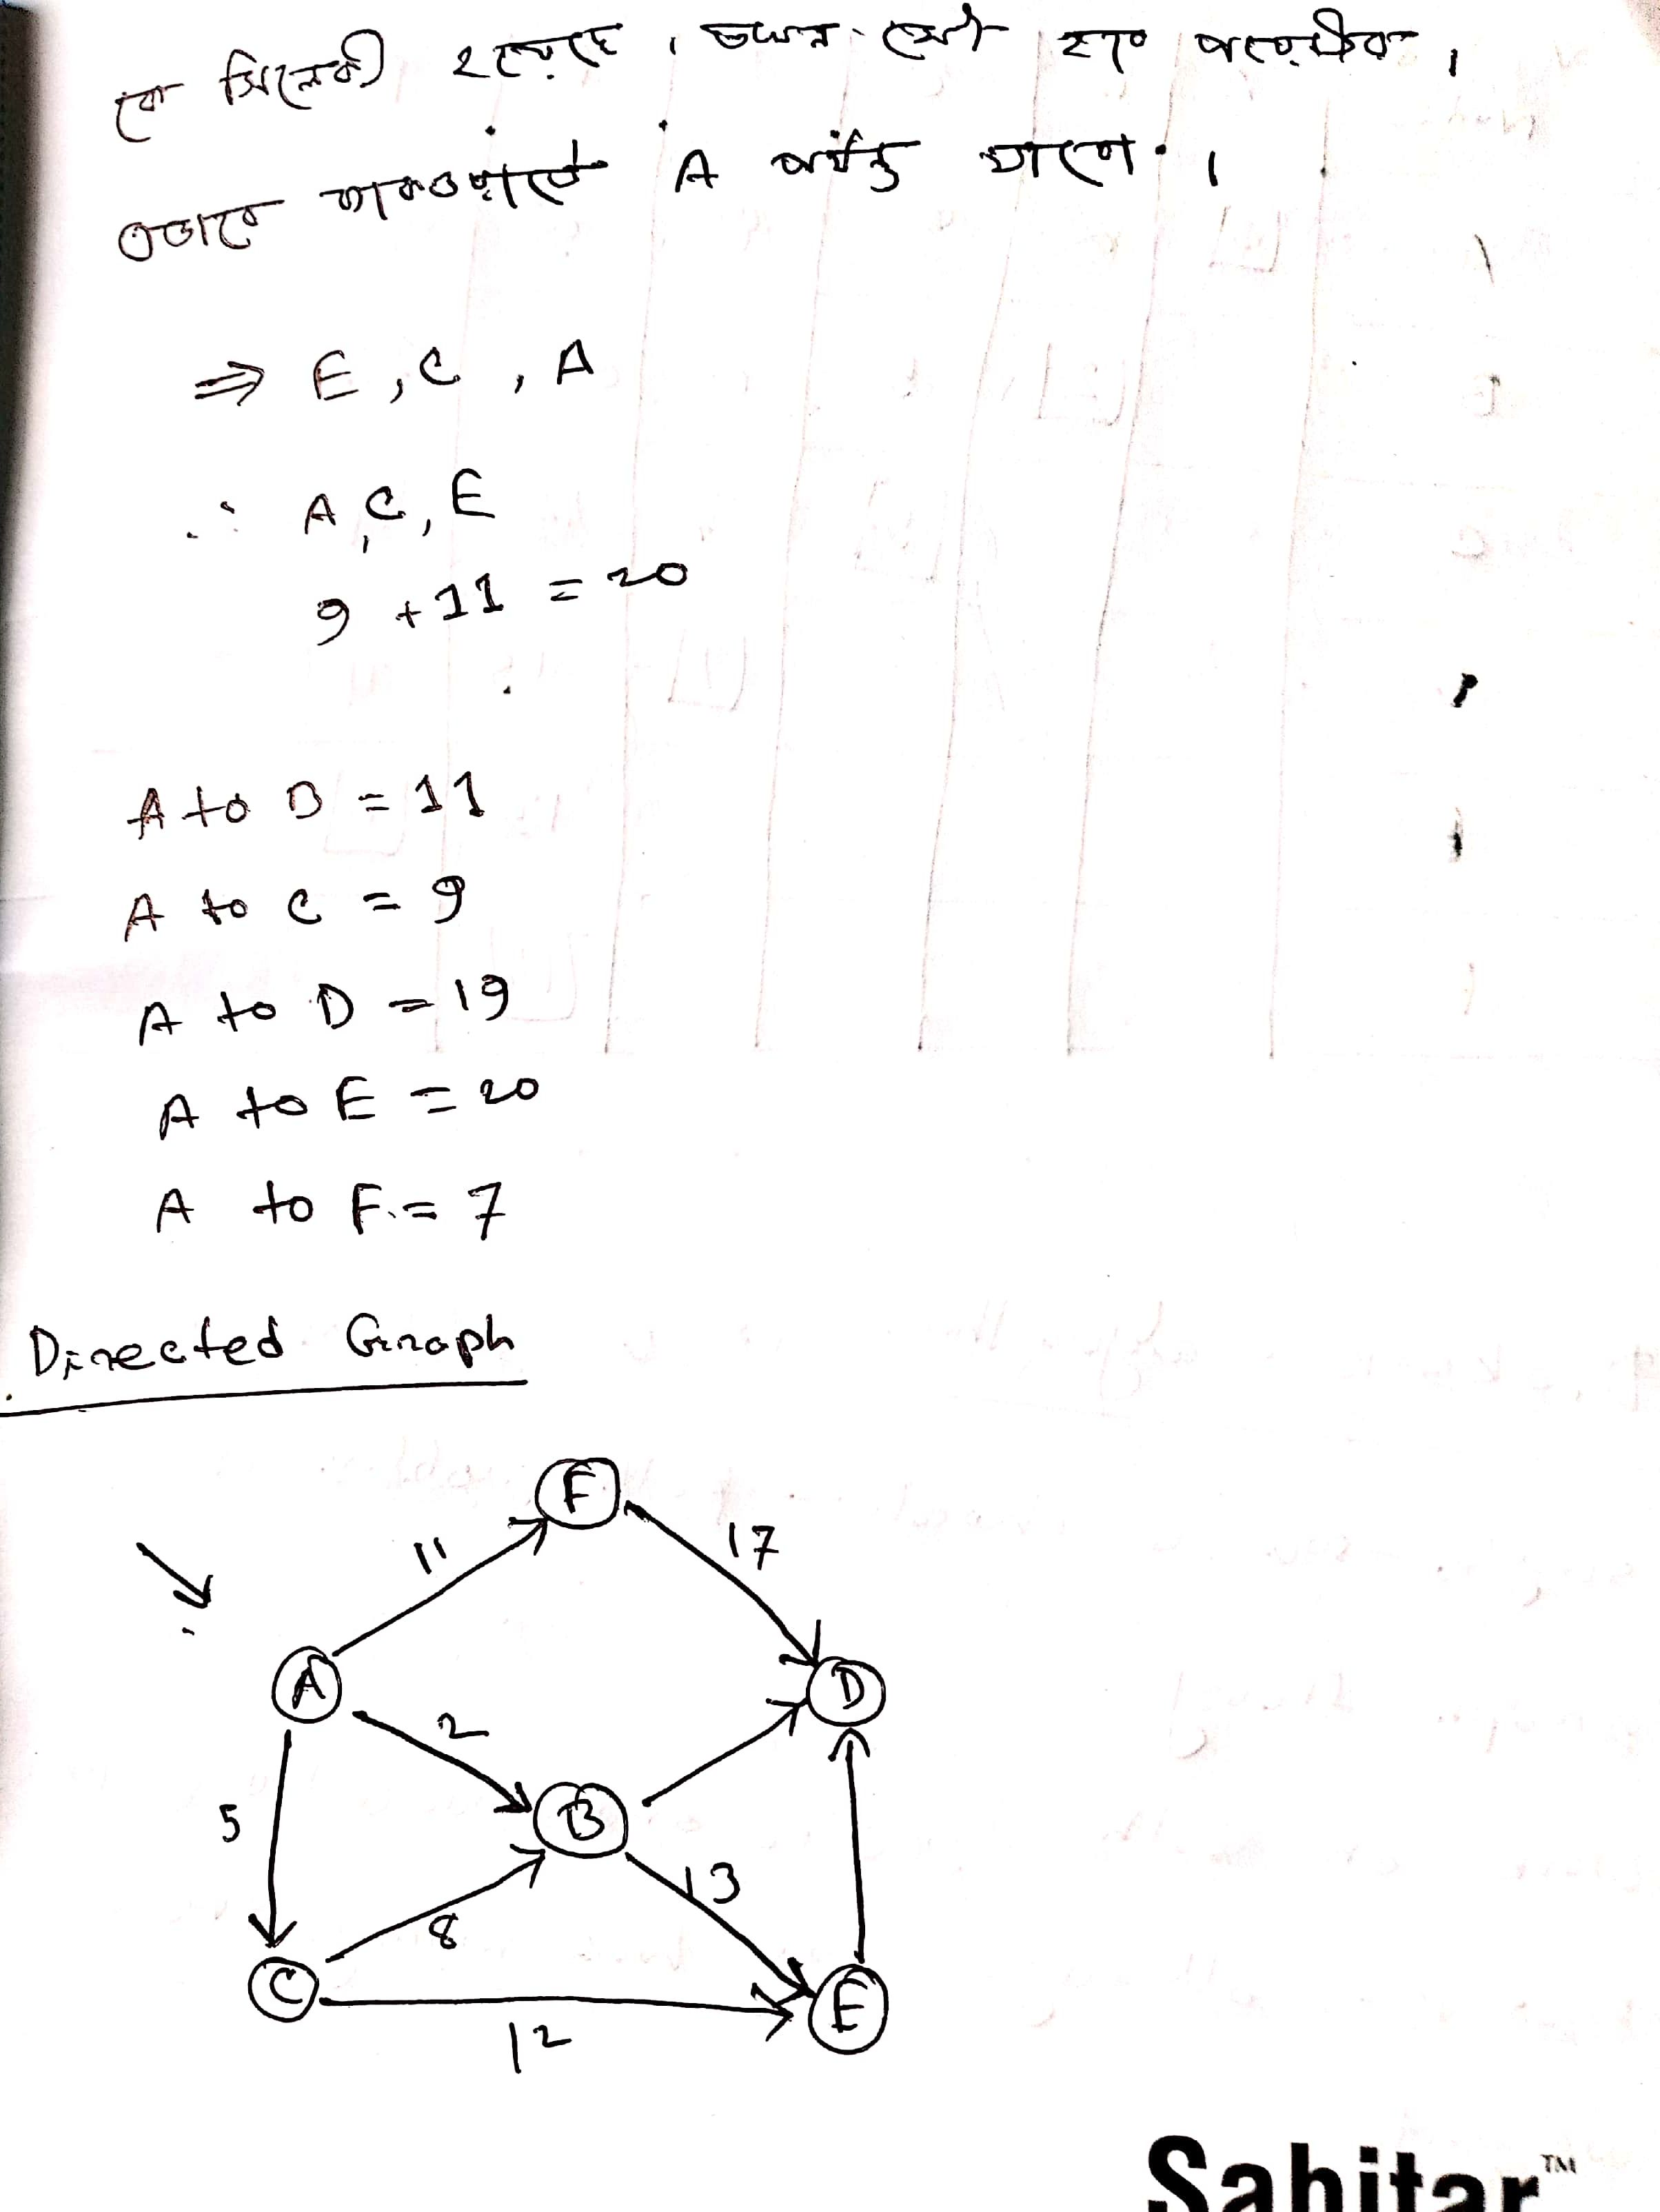 কে সিলেক্ট হয়েছে, তখন সেটা হবে পয়েন্ট।
এভাবে ব্যাকওয়ার্ডে A পর্যন্ত যাবো।
⇒ E, C, A
∴ A, C, E
9 + 11 = 20
A to B = 11
A to C = 9
A to D = 19
A to E = 20
A to F = 7
Directed Graph
F
11
17
A
D
2
5
B
13
8
C
E
12
Sahitar™